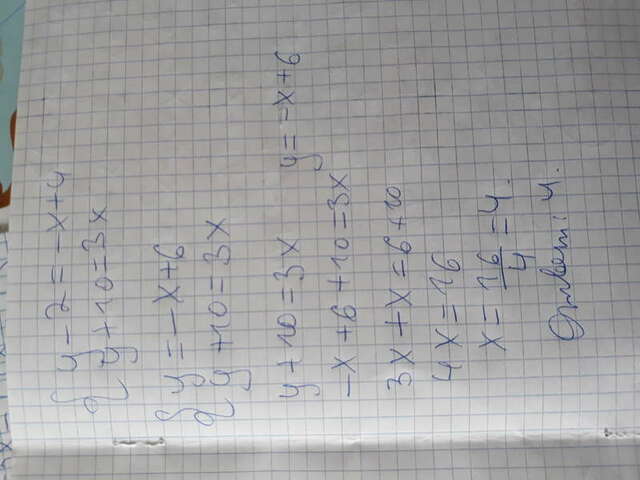 { y - 2 = -x + 4
y + 10 = 3x
{ y = -x + 6
y + 10 = 3x
y + 10 = 3x y = -x + 6
-x + 6 + 10 = 3x
3x + x = 6 + 10
4x = 16
x = 16/4 = 4.
Ответ: 4.